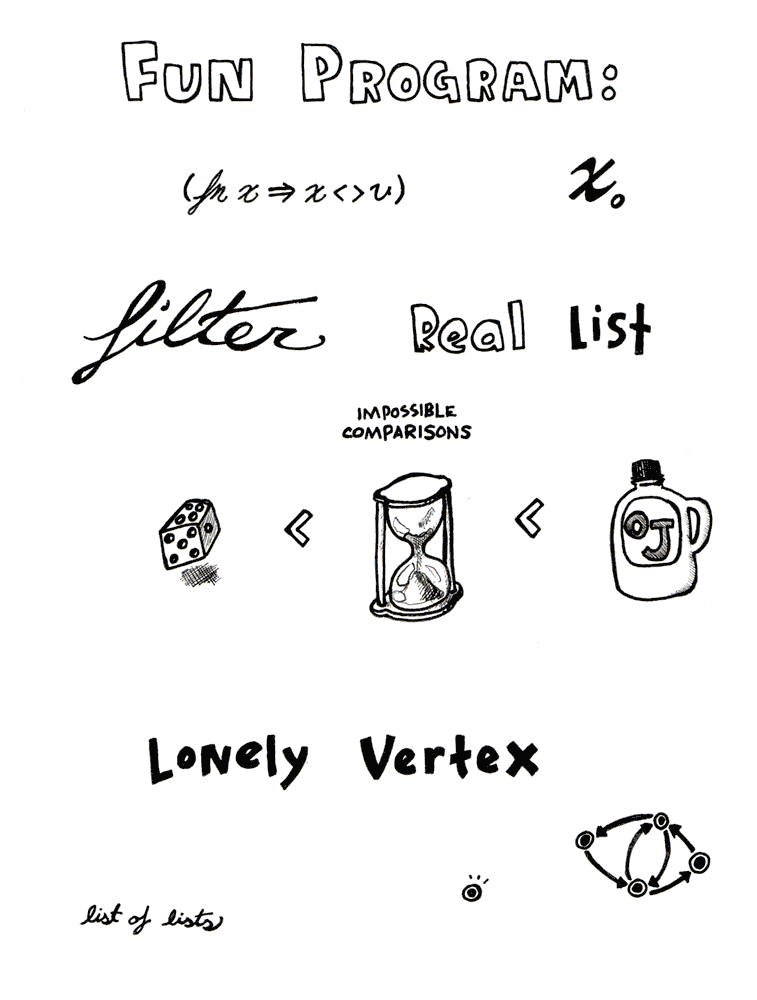 FUN PROGRAM:
(fn x ⇒ x <> v) x₀
filter Real list
IMPOSSIBLE
COMPARISONS
< <
OJ
Lonely Vertex
list of lists